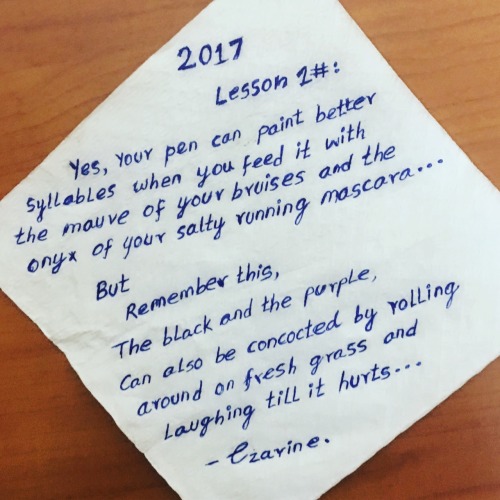 2017
Lesson 1#:
Yes, Your pen can paint better
syllables when you feed it with
the mauve of your bruises and the
onyx of your salty running mascara...
But
Remember this,
The black and the purple,
Can also be concocted by rolling
around on fresh grass and
Laughing till it hurts...
- Czarine.